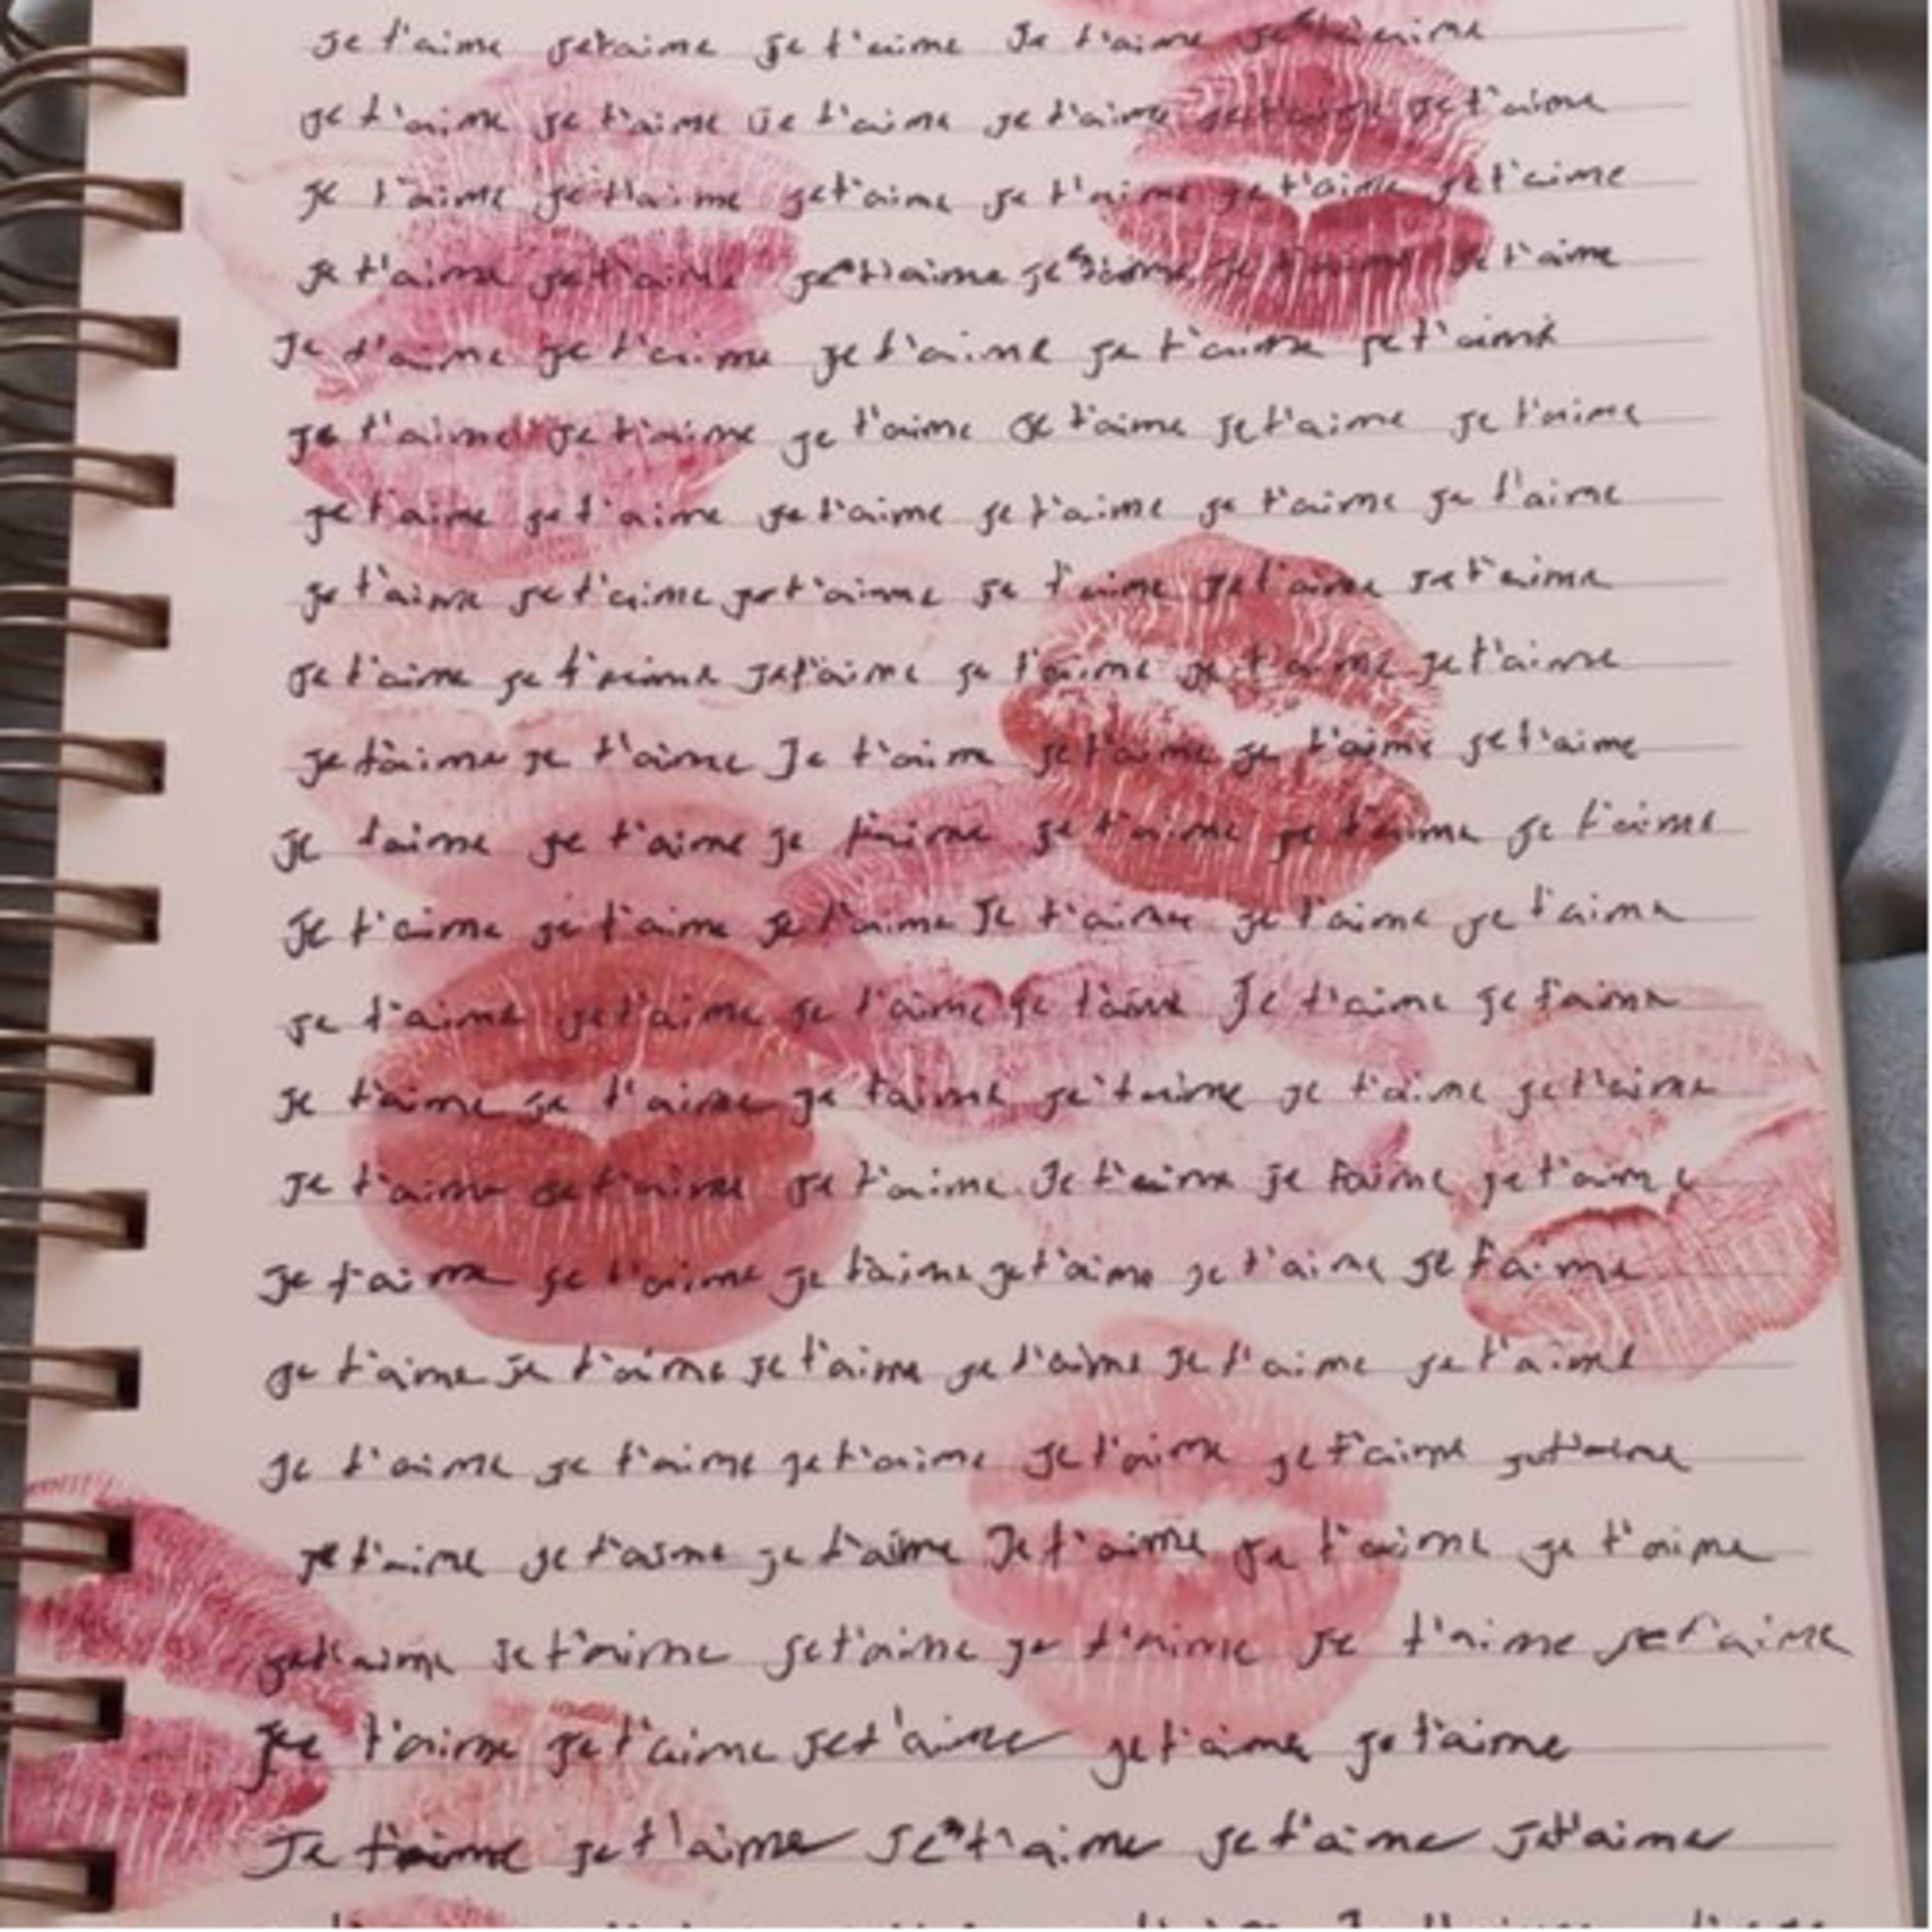 je t'aime je t'aime je t'aime Je t'aime je t'aime
je t'aime je t'aime je t'aime je t'aime je t'aime je t'aime
je t'aime je t'aime je t'aime je t'aime je t'aime je t'aime
je t'aime je t'aime je t'aime je t'aime je t'aime je t'aime
Je t'aime je t'aime je t'aime je t'aime je t'aime
je t'aime je t'aime je t'aime je t'aime je t'aime je t'aime
je t'aime je t'aime je t'aime je t'aime je t'aime je t'aime
je t'aime je t'aime je t'aime je t'aime je t'aime je t'aime
je t'aime je t'aime je t'aime je t'aime je t'aime je t'aime
je t'aime je t'aime Je t'aime je t'aime je t'aime je t'aime
je t'aime je t'aime je t'aime je t'aime je t'aime je t'aime
Je t'aime je t'aime je t'aime Je t'aime je t'aime je t'aime
je t'aime je t'aime je t'aime je t'aime Je t'aime je t'aime
je t'aime je t'aime je t'aime je t'aime je t'aime je t'aime
je t'aime je t'aime je t'aime Je t'aime je t'aime je t'aime
je t'aime je t'aime je t'aime je t'aime je t'aime je t'aime
je t'aime je t'aime je t'aime je t'aime je t'aime je t'aime
je t'aime je t'aime je t'aime je t'aime je t'aime je t'aime
je t'aime je t'aime je t'aime Je t'aime je t'aime je t'aime
je t'aime je t'aime je t'aime je t'aime je t'aime je t'aime
je t'aime je t'aime je t'aime je t'aime je t'aime
Je t'aime je t'aime je t'aime je t'aime je t'aime